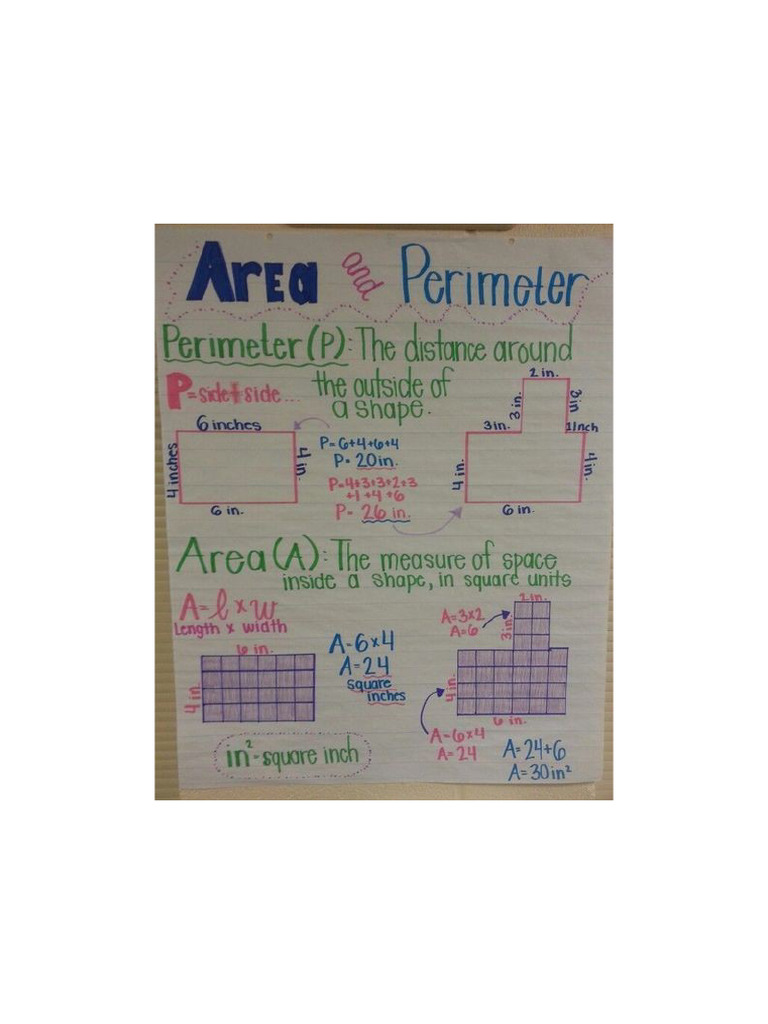 Area and Perimeter
Perimeter (P): The distance around
the outside of
a shape.
P=side+side...
6 inches
4 inches
4 in.
6 in.
P=6+4+6+4
P=20in.
P=4+3+3+2+3
+1+4+6
P=26 in.
2 in.
3 in.
3in
3in.
1 Inch
4 in.
4in.
6 in.
Area (A): The measure of space
inside a shape, in square units
A=l×w
Length x width
6 in.
4 in.
A=6×4
A=24
square
inches
A=3×2
A=6
2 in.
3in
4in.
6 in.
A=6×4
A=24
A=24+6
A=30in²
in²=square inch